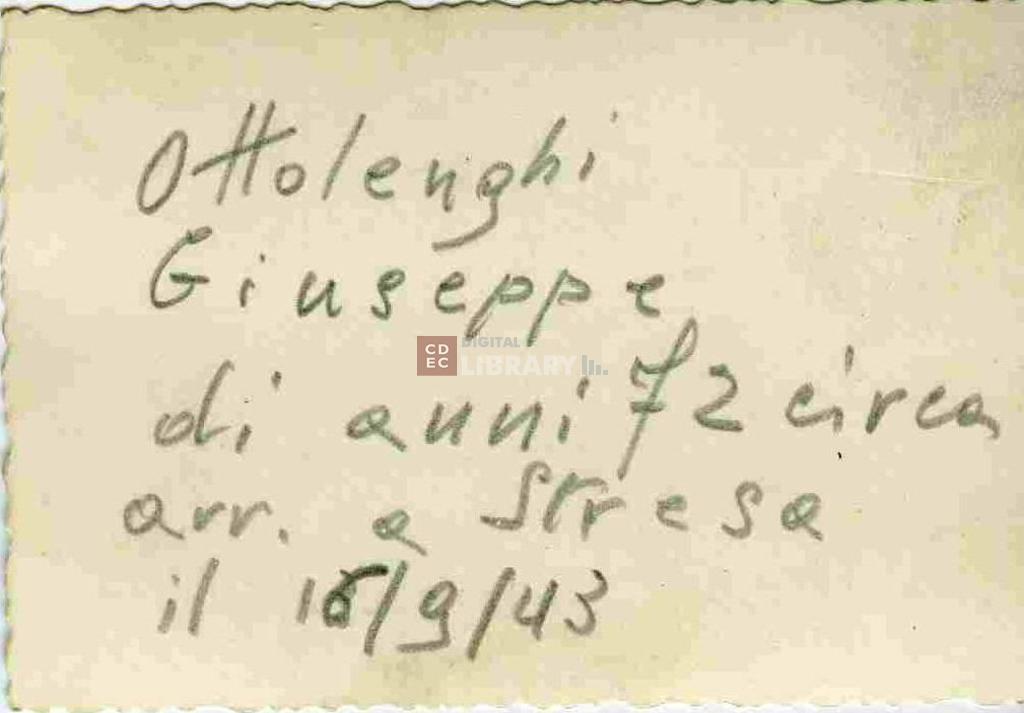 Ottolenghi
Giuseppe
CDEC DIGITAL LIBRARY
di anni 72 circa
arr. a Stresa
il 16/9/43